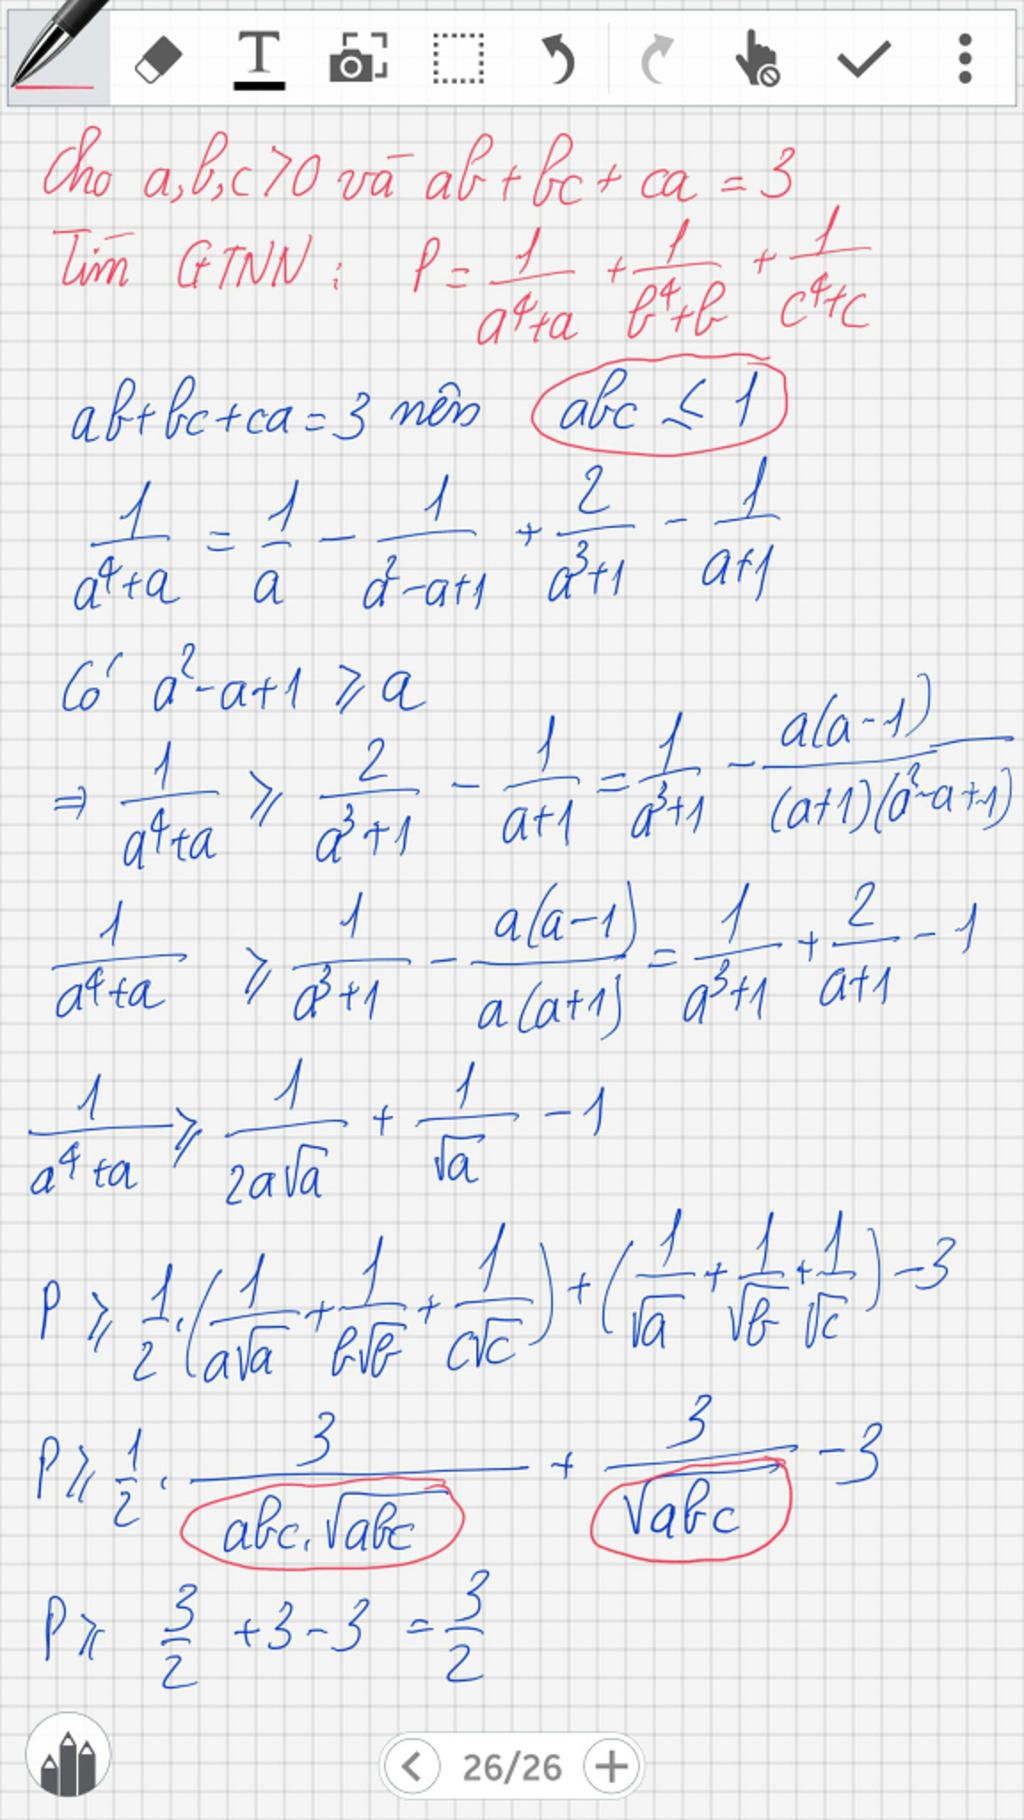 T
Cho a,b,c>0 và ab+bc+ca=3
Tìm GTNN: P = 1/(a⁴+a) + 1/(b⁴+b) + 1/(c⁴+c)
ab+bc+ca=3 nên abc ≤ 1
1/(a⁴+a) = 1/a - 1/(a²-a+1) + 2/(a³+1) - 1/(a+1)
Có a²-a+1 ≥ a
⇒ 1/(a⁴+a) ≥ 2/(a³+1) - 1/(a+1) = 1/(a³+1) - a(a-1)/((a+1)(a²-a+1))
1/(a⁴+a) ≥ 1/(a³+1) - a(a-1)/(a(a+1)) = 1/(a³+1) + 2/(a+1) - 1
1/(a⁴+a) ≥ 1/(2a√a) + 1/√a - 1
P ≥ 1/2.(1/(a√a) + 1/(b√b) + 1/(c√c)) + (1/√a + 1/√b + 1/√c) - 3
P ≥ 1/2 . 3/(abc.√abc) + 3/√abc - 3
P ≥ 3/2 + 3 - 3 = 3/2
26/26